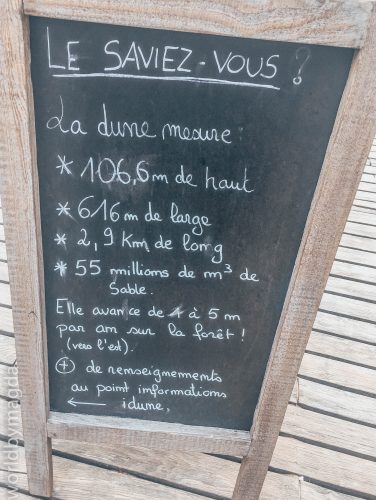 LE SAVIEZ-VOUS ?
La dune mesure :
* 106,6 m de haut
* 616 m de large
* 2,9 Km de long
* 55 millions de m³ de
Sable.
Elle avance de 1 à 5 m
par an sur la forêt !
(vers l'est).
+ de renseignements
au point informations
← idune,
worldbymagda